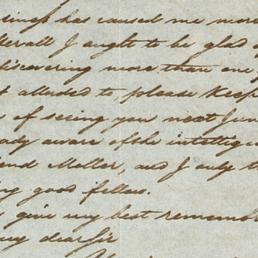 has caused me more
I ought to be glad of
discovering more than one
alluded to please keep
of seeing you next June
aware of the intellige
and Matter, and I only th
ing good fellow.
give my best remembr
my dear Sir